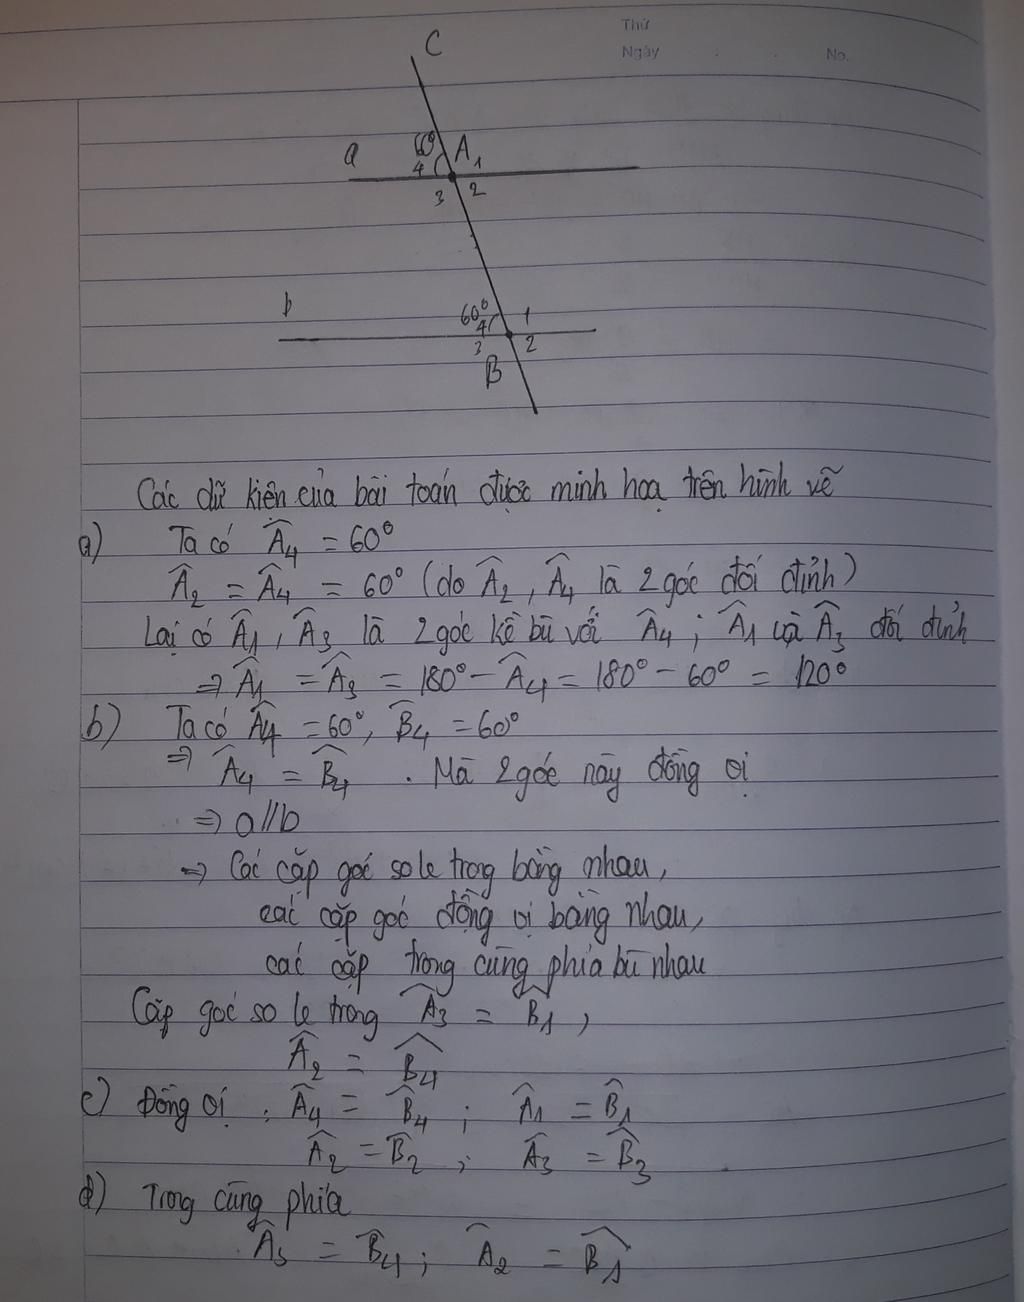 Thứ
Ngày . . No.
C
a 60° A 1
4
3 2
b 60° 1
4
3 2
B
Các dữ kiện của bài toán được minh hoạ trên hình vẽ
a) Ta có Â4 = 60°
Â2 = Â4 = 60° (do Â2, Â4 là 2 góc đối đỉnh)
Lại có Â1, Â3 là 2 góc kề bù với Â4; Â1 và Â3 đối đỉnh
⇒ Â1 = Â3 = 180° - Â4 = 180° - 60° = 120°
b) Ta có Â4 = 60°, B̂4 = 60°
⇒ Â4 = B̂4. Mà 2 góc này đồng vị
⇒ a//b
⇒ Các cặp góc so le trong bằng nhau,
các cặp góc đồng vị bằng nhau,
các cặp trong cùng phía bù nhau
Cặp góc so le trong Â3 = B̂1,
Â2 = B̂4
c) Đồng vị: Â4 = B̂4; Â1 = B̂1
Â2 = B̂2; Â3 = B̂3
d) Trong cùng phía
Â3 = B̂4; Â2 = B̂1